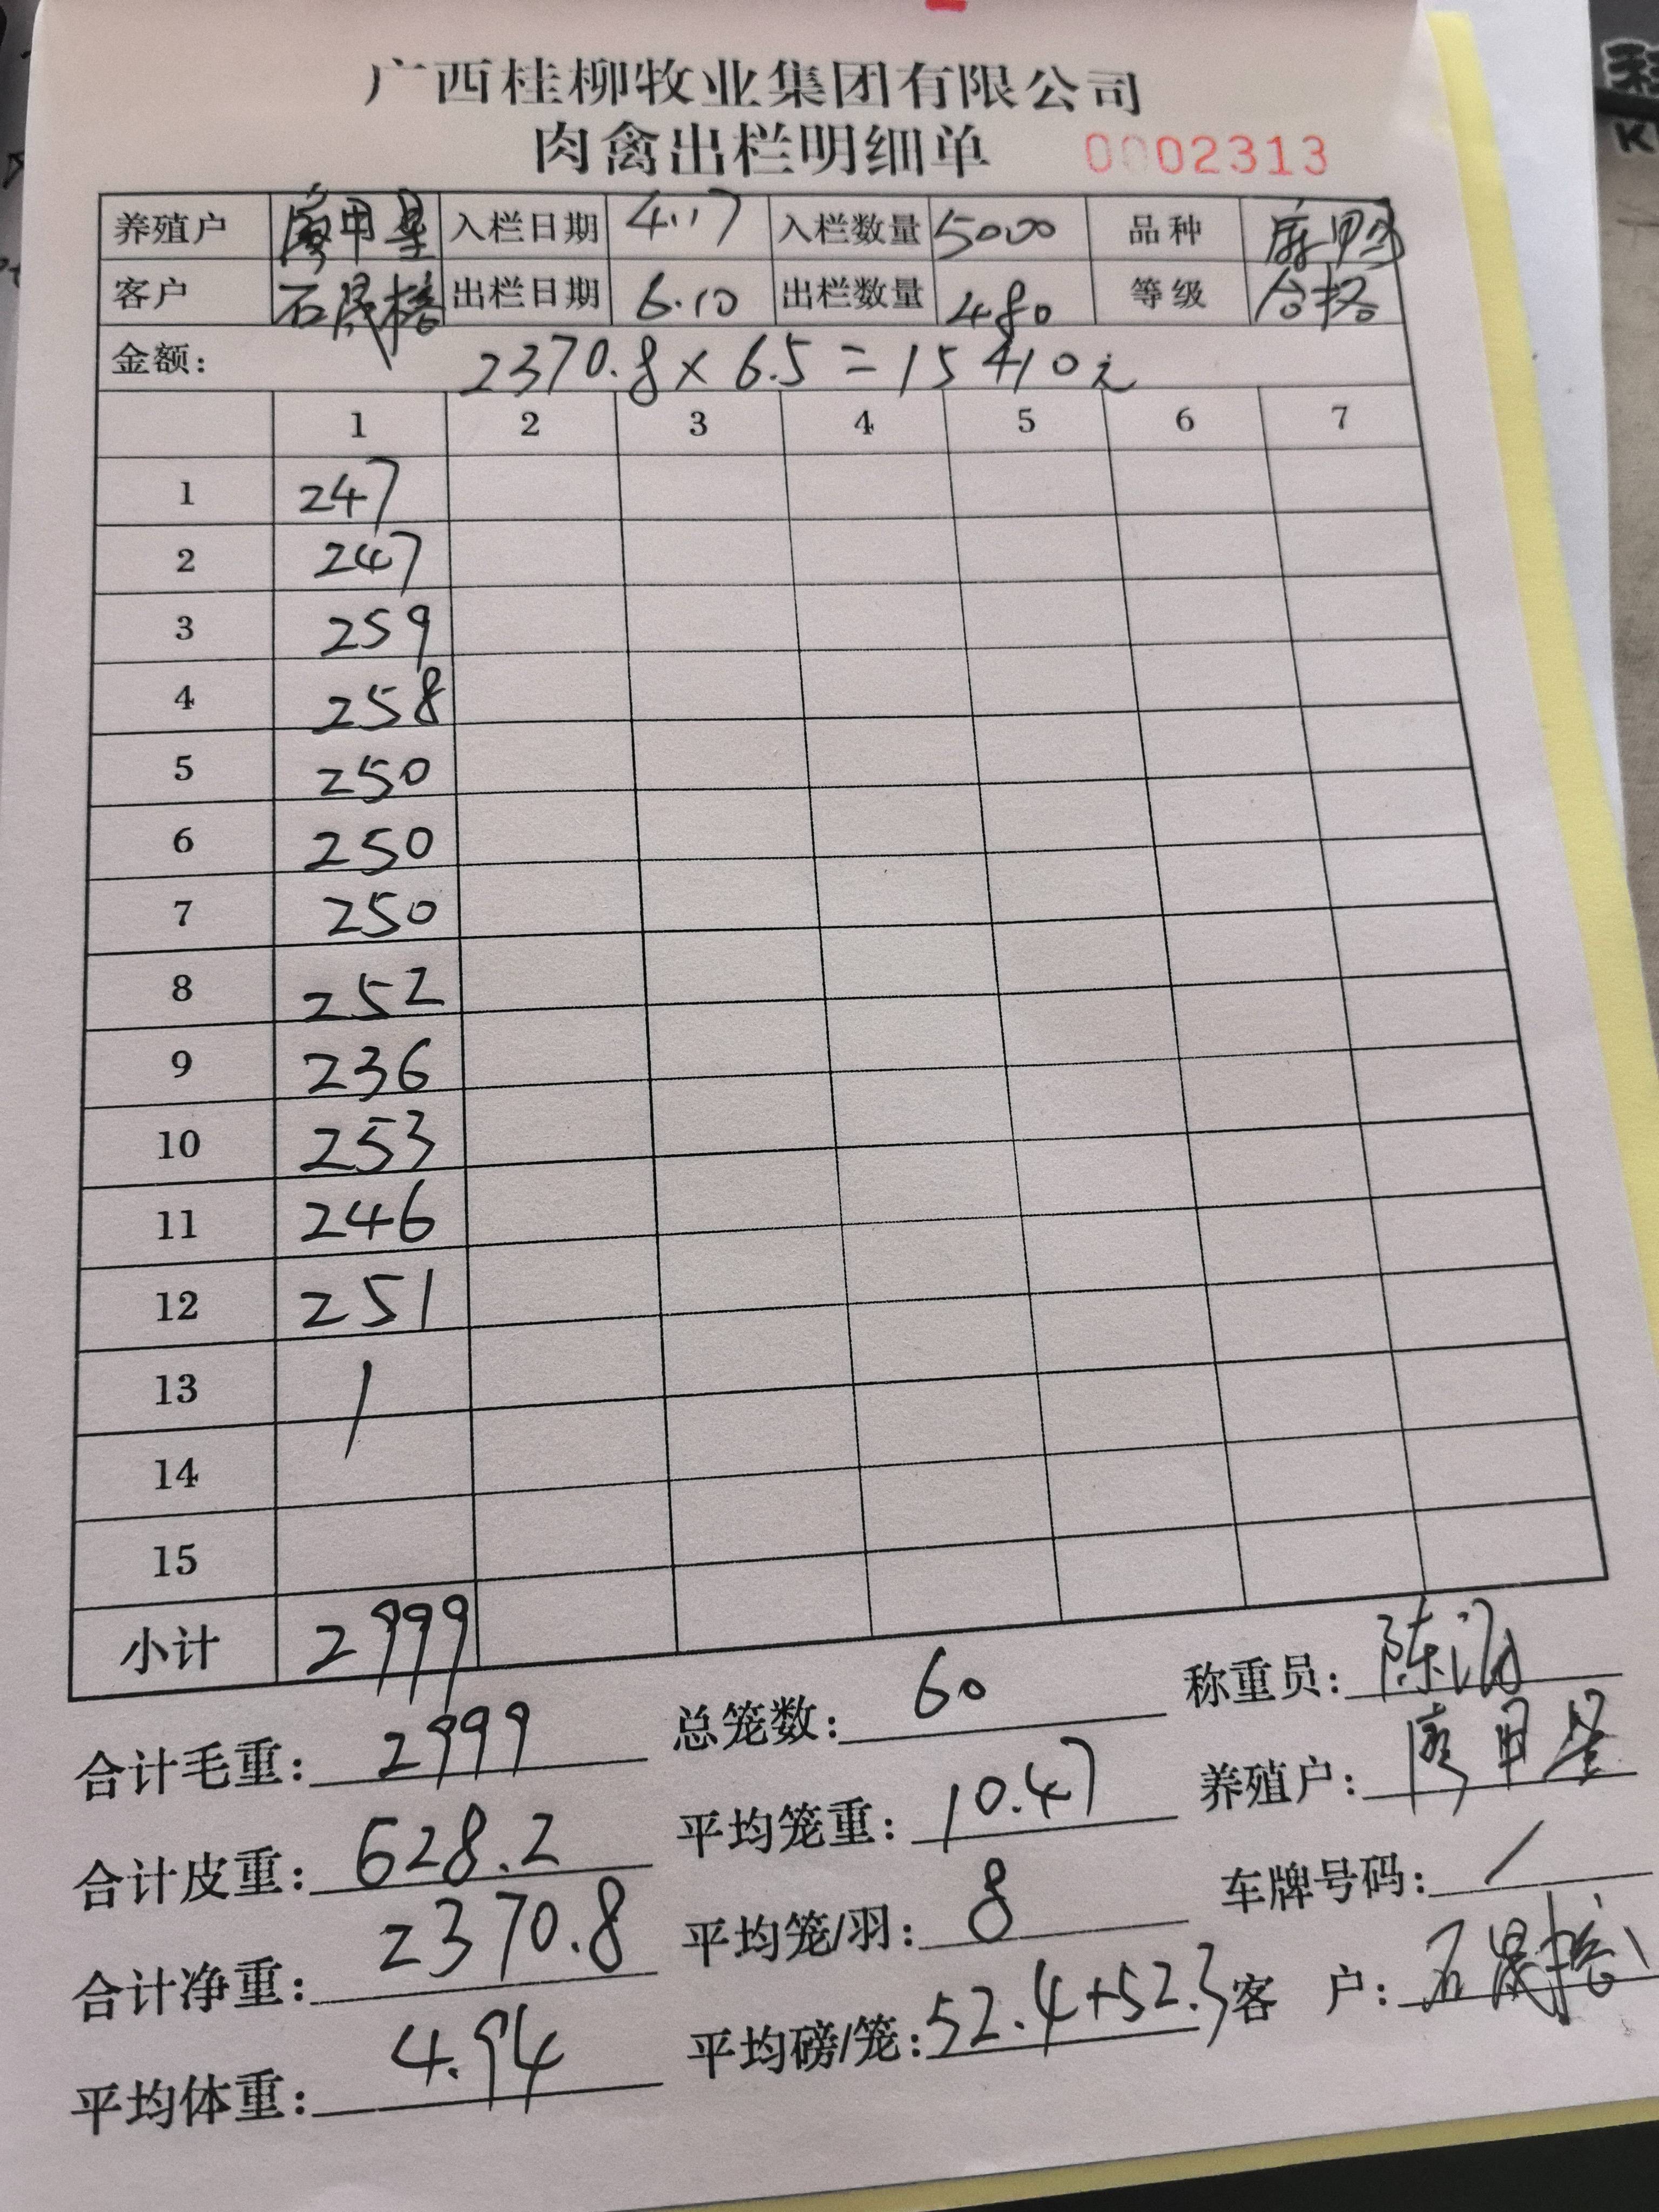 广西桂柳牧业集团有限公司
肉禽出栏明细单 0002313
养殖户 廖甲星 入栏日期 4.17 入栏数量 5000 品种 麻鸭
客户 出栏日期 6.10 出栏数量 480 等级 合格
金额: 2370.8×6.5=15410元
1 2 3 4 5 6 7
1 247
2 247
3 259
4 258
5 250
6 250
7 250
8 252
9 236
10 253
11 246
12 251
13 /
14
15
小计 2999
合计毛重: 2999 总笼数: 60 称重员: 陈
合计皮重: 628.2 平均笼重: 10.47 养殖户: 廖甲星
合计净重: 2370.8 平均笼/羽: 8 车牌号码: /
平均体重: 4.94 平均磅/笼: 52.4+52.3 客户: